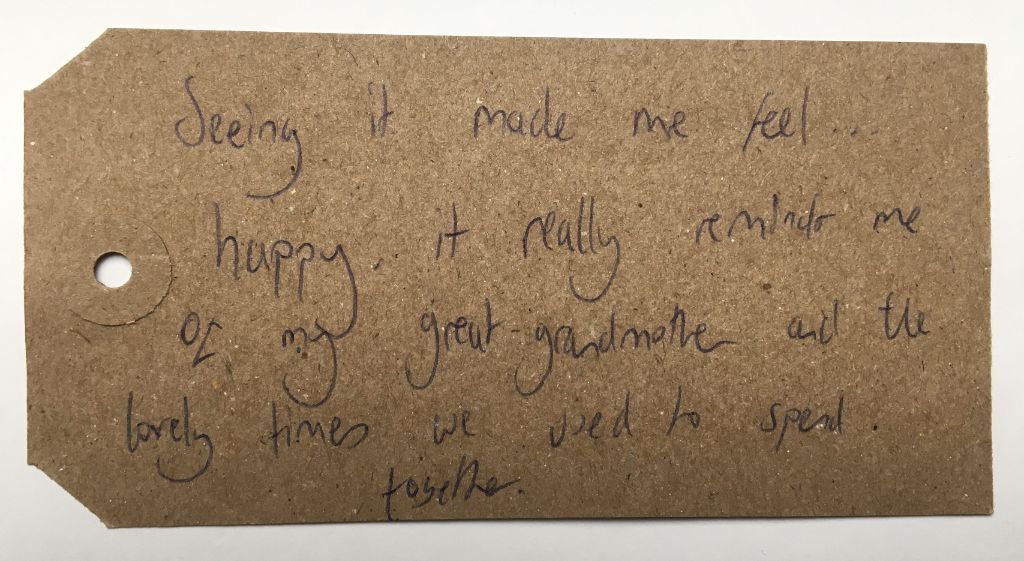 Seeing it made me feel...
happy. it really reminds me
of my great-grandmother and the
lovely times we used to spend.
together.